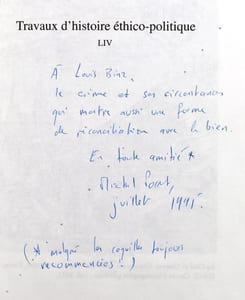 Travaux d'histoire éthico-politique
LIV
À Louis Binz,
le crime et ses circonstances
qui montre aussi une forme
de réconciliation avec le bien.
En toute amitié *
Michel Porret,
juillet 1995.
(* malgré les coquilles toujours
recommencées !)